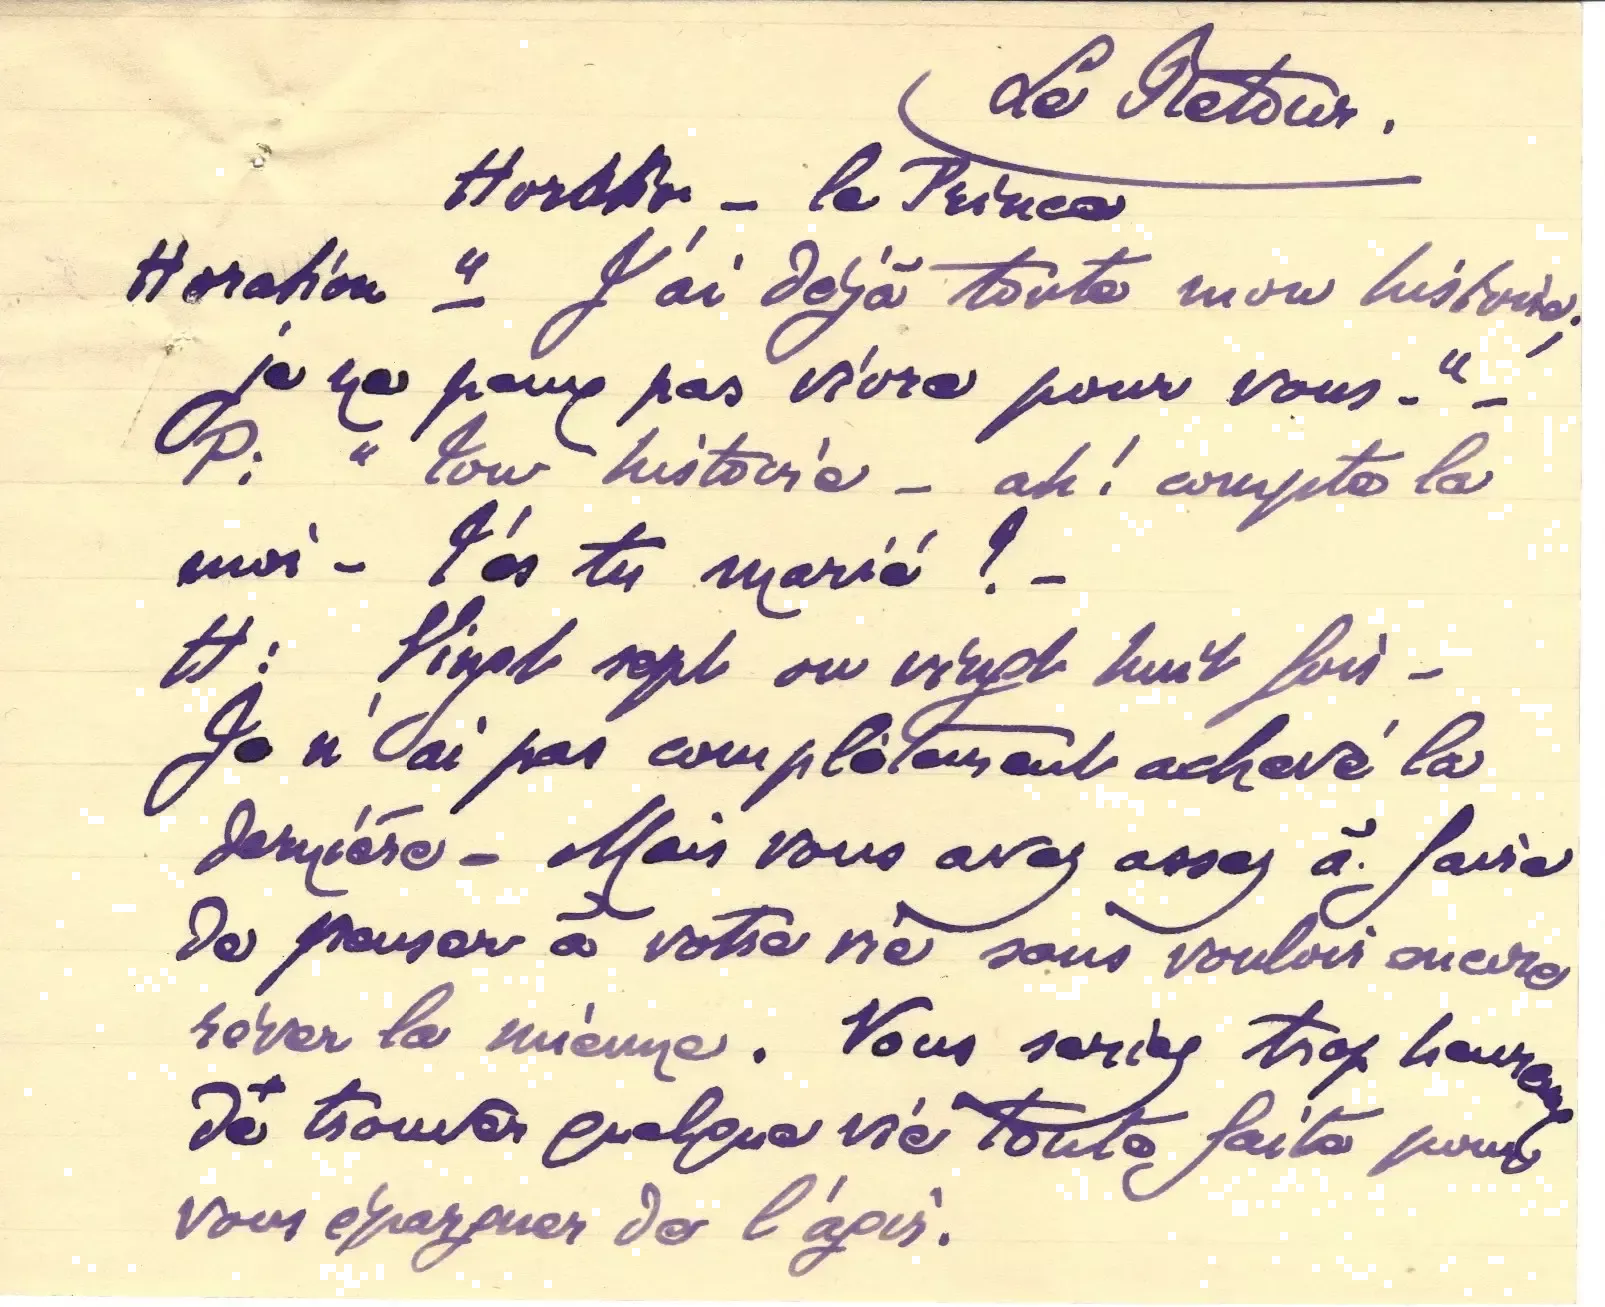 Le Retour.
Horatio - le Prince
Horation " J'ai déjà toute mon histoire;
je ne peux pas vivre pour vous - " -
P: " Ton histoire - ah! compte la
moi - T'es tu marié ! -
H : Vingt sept ou vingt huit fois -
Je n'ai pas complètement achevé la
dernière - Mais vous avez assez à faire
de penser à votre vie sans vouloir encore
rêver la mienne. Vous seriez trop heureux
de trouver quelque vie toute faite pour
vous épargner de l'agir.